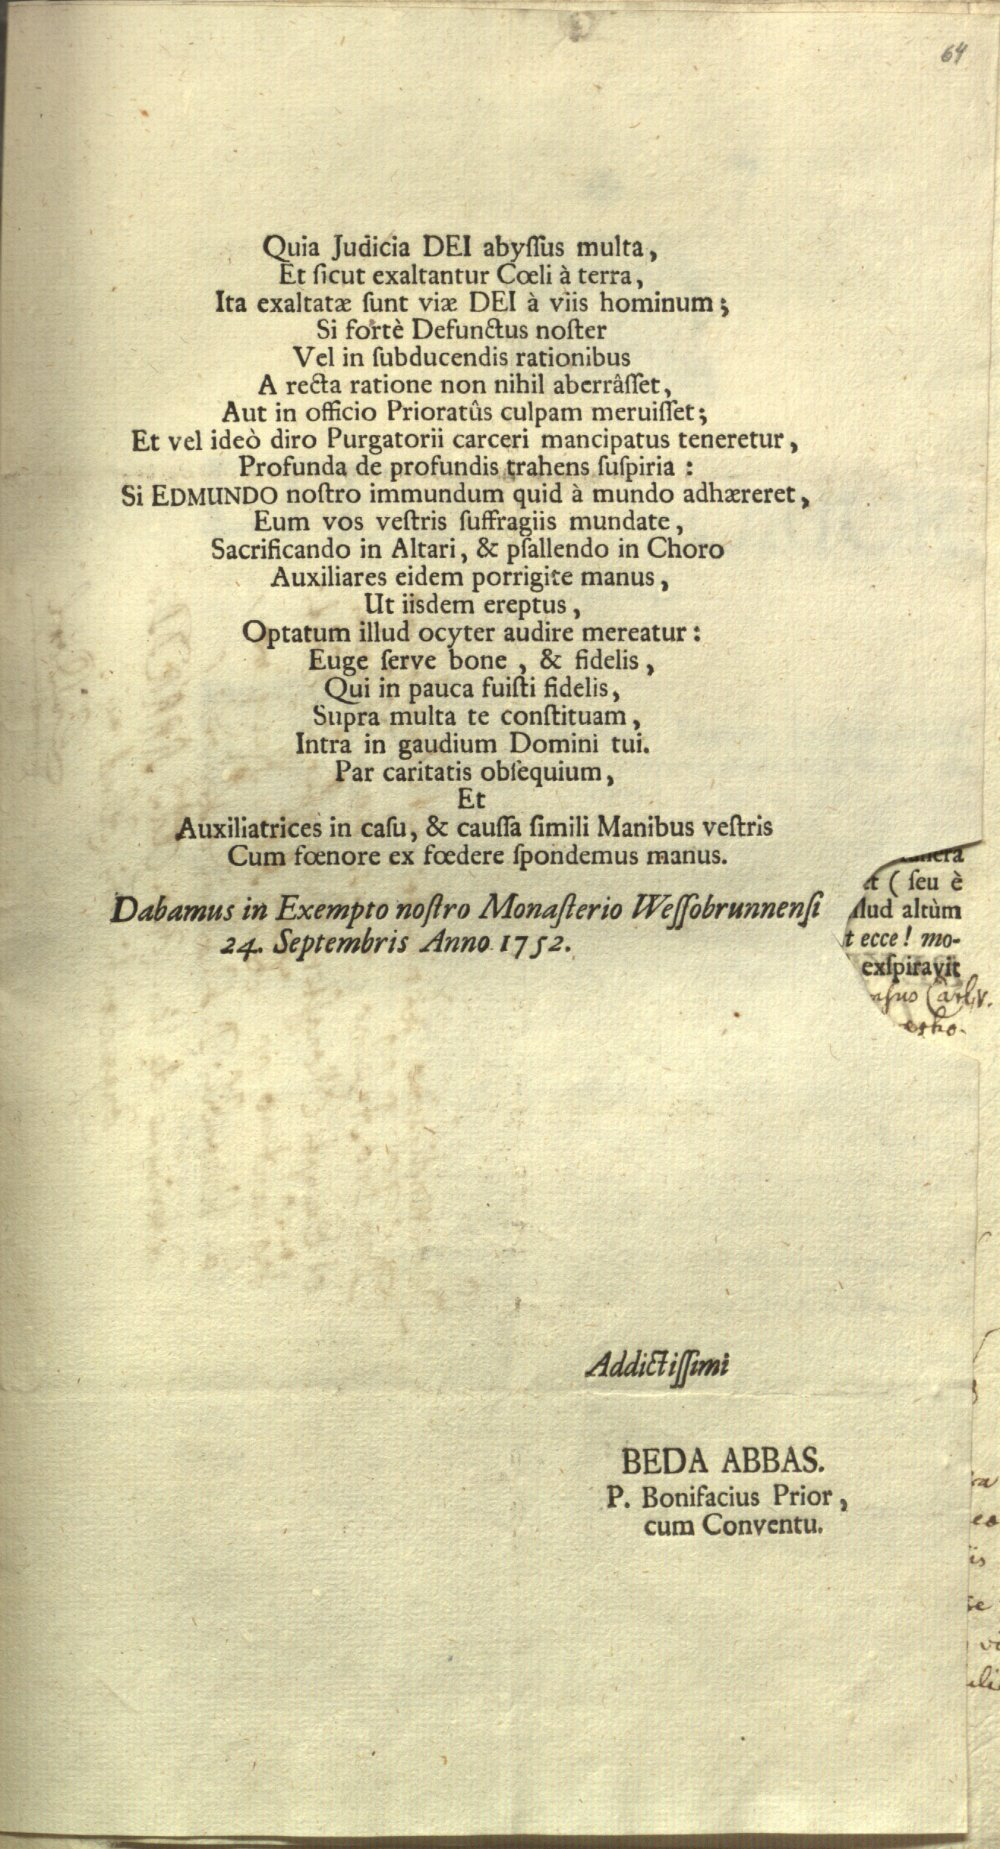 64
Quia Judicia DEI abyſſus multa,
Et ſicut exaltantur Cœli à terra,
Ita exaltatæ ſunt viæ DEI à viis hominum;
Si fortè Defunctus noſter
Vel in ſubducendis rationibus
A recta ratione non nihil aberrâſſet,
Aut in officio Prioratûs culpam meruiſſet;
Et vel ideò diro Purgatorii carceri mancipatus teneretur,
Profunda de profundis trahens ſuſpiria:
Si EDMUNDO noſtro immundum quid à mundo adhæreret,
Eum vos veſtris ſuffragiis mundate,
Sacrificando in Altari, & pſallendo in Choro
Auxiliares eidem porrigite manus,
Ut iisdem ereptus,
Optatum illud ocyter audire mereatur:
Euge ſerve bone, & fidelis,
Qui in pauca fuiſti fidelis,
Supra multa te conſtituam,
Intra in gaudium Domini tui.
Par caritatis obſequium,
Et
Auxiliatrices in caſu, & cauſſa ſimili Manibus veſtris
Cum fœnore ex fœdere ſpondemus manus.
Dabamus in Exempto noſtro Monaſterio Weſſobrunnenſi
24. Septembris Anno 1752.
(ſeu è
altùm
ecce! mo-
exſpiravit
Addictiſſimi
BEDA ABBAS.
P. Bonifacius Prior,
cum Conventu.